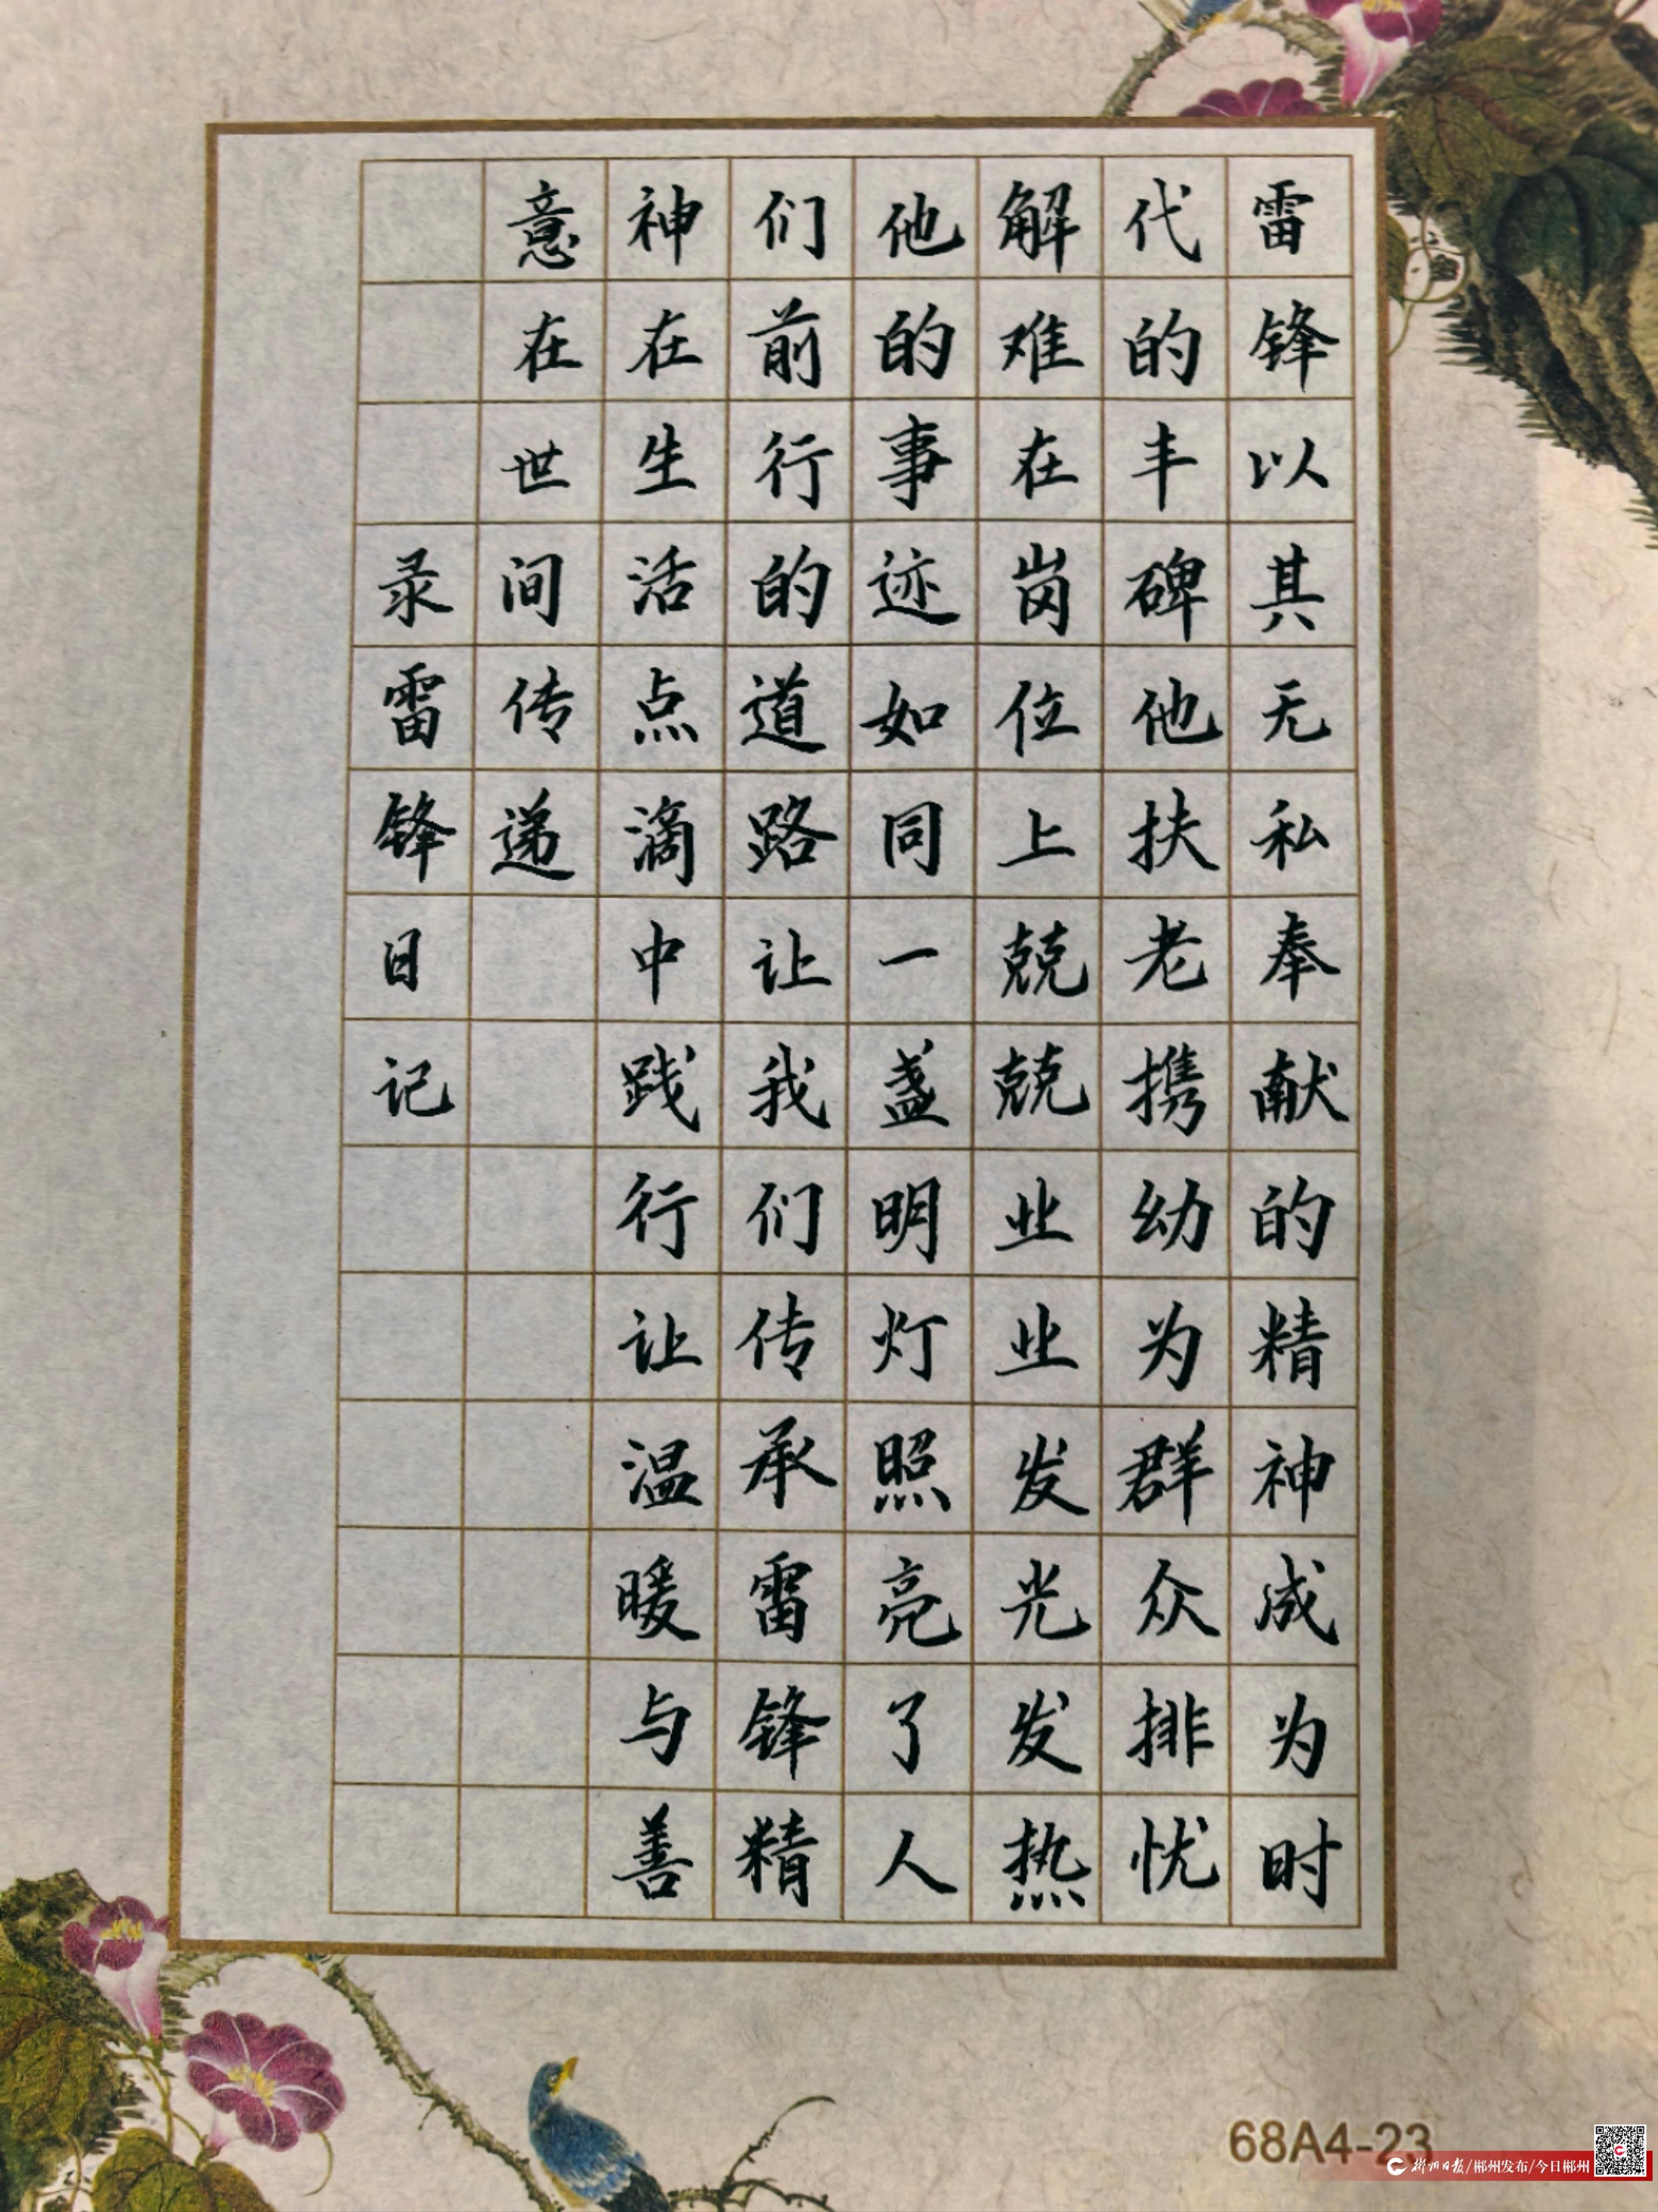 雷锋以其无私奉献的精神成为时
代的丰碑他扶老携幼为群众排忧
解难在岗位上兢兢业业发光发热
他的事迹如同一盏明灯照亮了人
们前行的道路让我们传承雷锋精
神在生活点滴中践行让温暖与善
意在世间传递
录雷锋日记
68A4-23
郴州日报/郴州发布/今日郴州